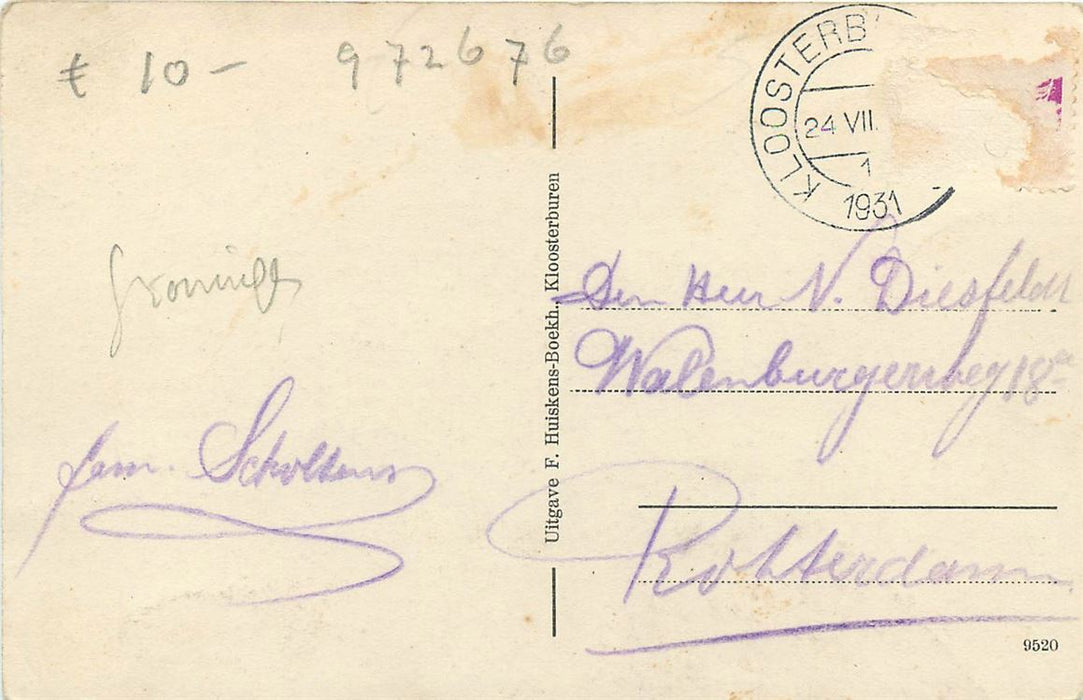 € 10 - 972676
KLOOSTERB
24 VII.
1
1931
Groningen
fam. Scholtens
Uitgave F. Huiskens-Boekh., Kloosterburen
Den Heer N. Diesfeldt
Walenburgerweg 18
Rotterdam
9520